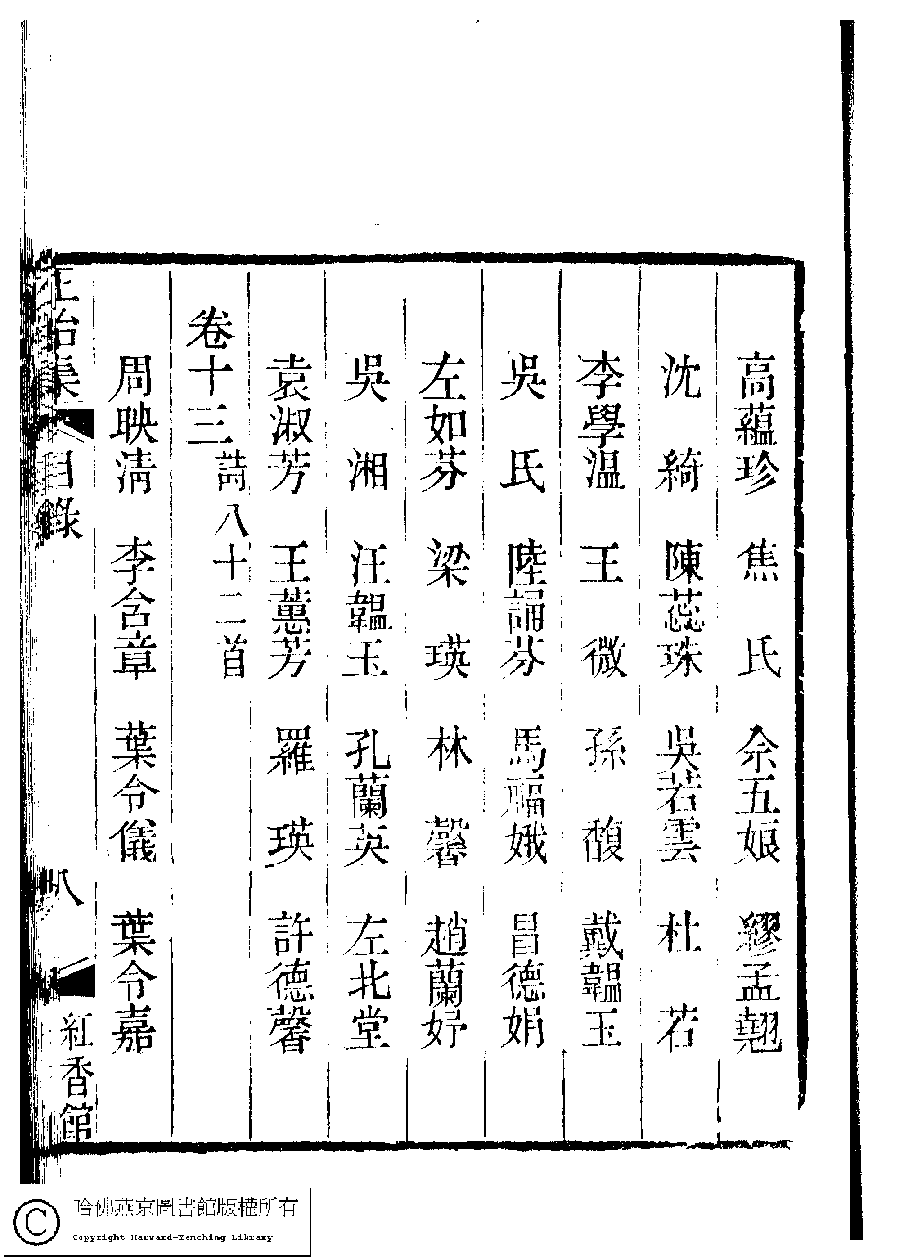 高蘊珍 焦氏 余五娘 繆孟翹
沈綺 陳蕊珠 吳若雲 杜若
李學溫 王微 孫馥 戴韞玉
吳氏 陸誦芬 馬福娥 昌德娟
左如芬 梁瑛 林馨 趙蘭妤
吳湘 汪韞玉 孔蘭英 左北堂
袁淑芳 王蕙芳 羅瑛 許德馨
卷十三 詩八十二首
周映清 李含章 葉令儀 葉令嘉
正始集 目錄 八 紅香館
哈佛燕京圖書館版權所有
Copyright Harvard-Yenching Library